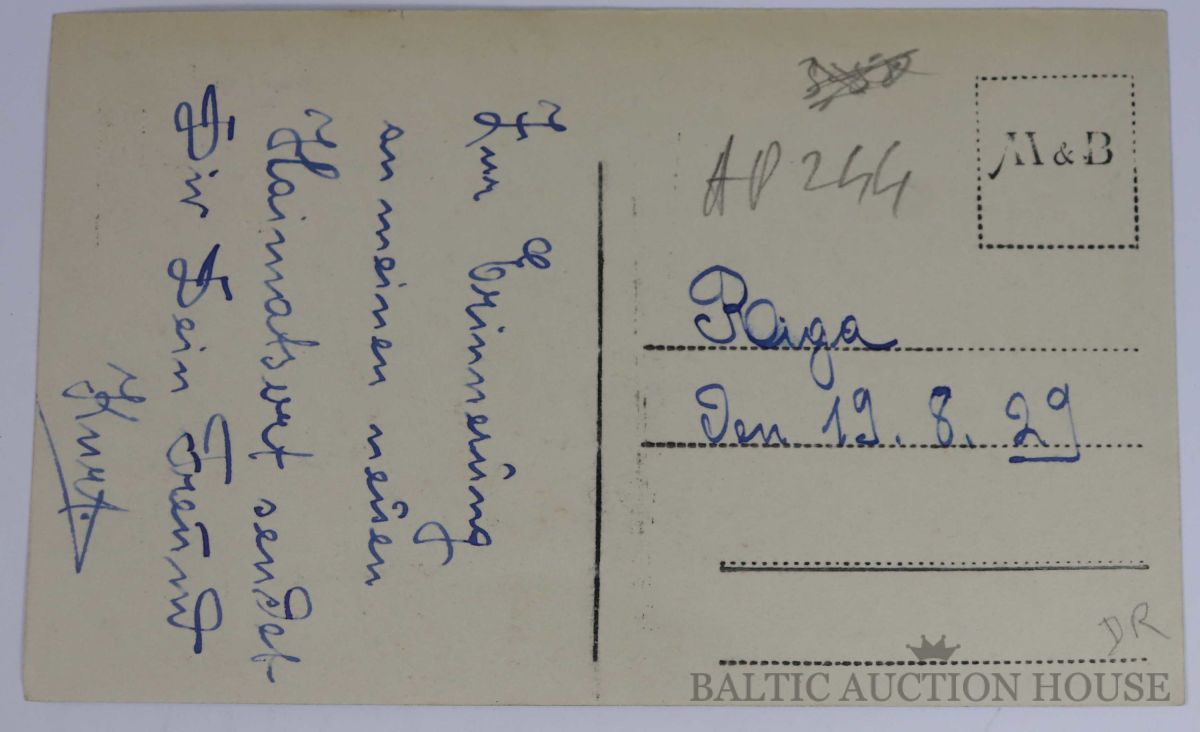 Zur Erinnerung
an meinen neuen
Haimatsort sendet
Dir Dein Freund
Kurt.
AP 244
M & B
Riga
Den 19. 8. 29
DR
BALTIC AUCTION HOUSE